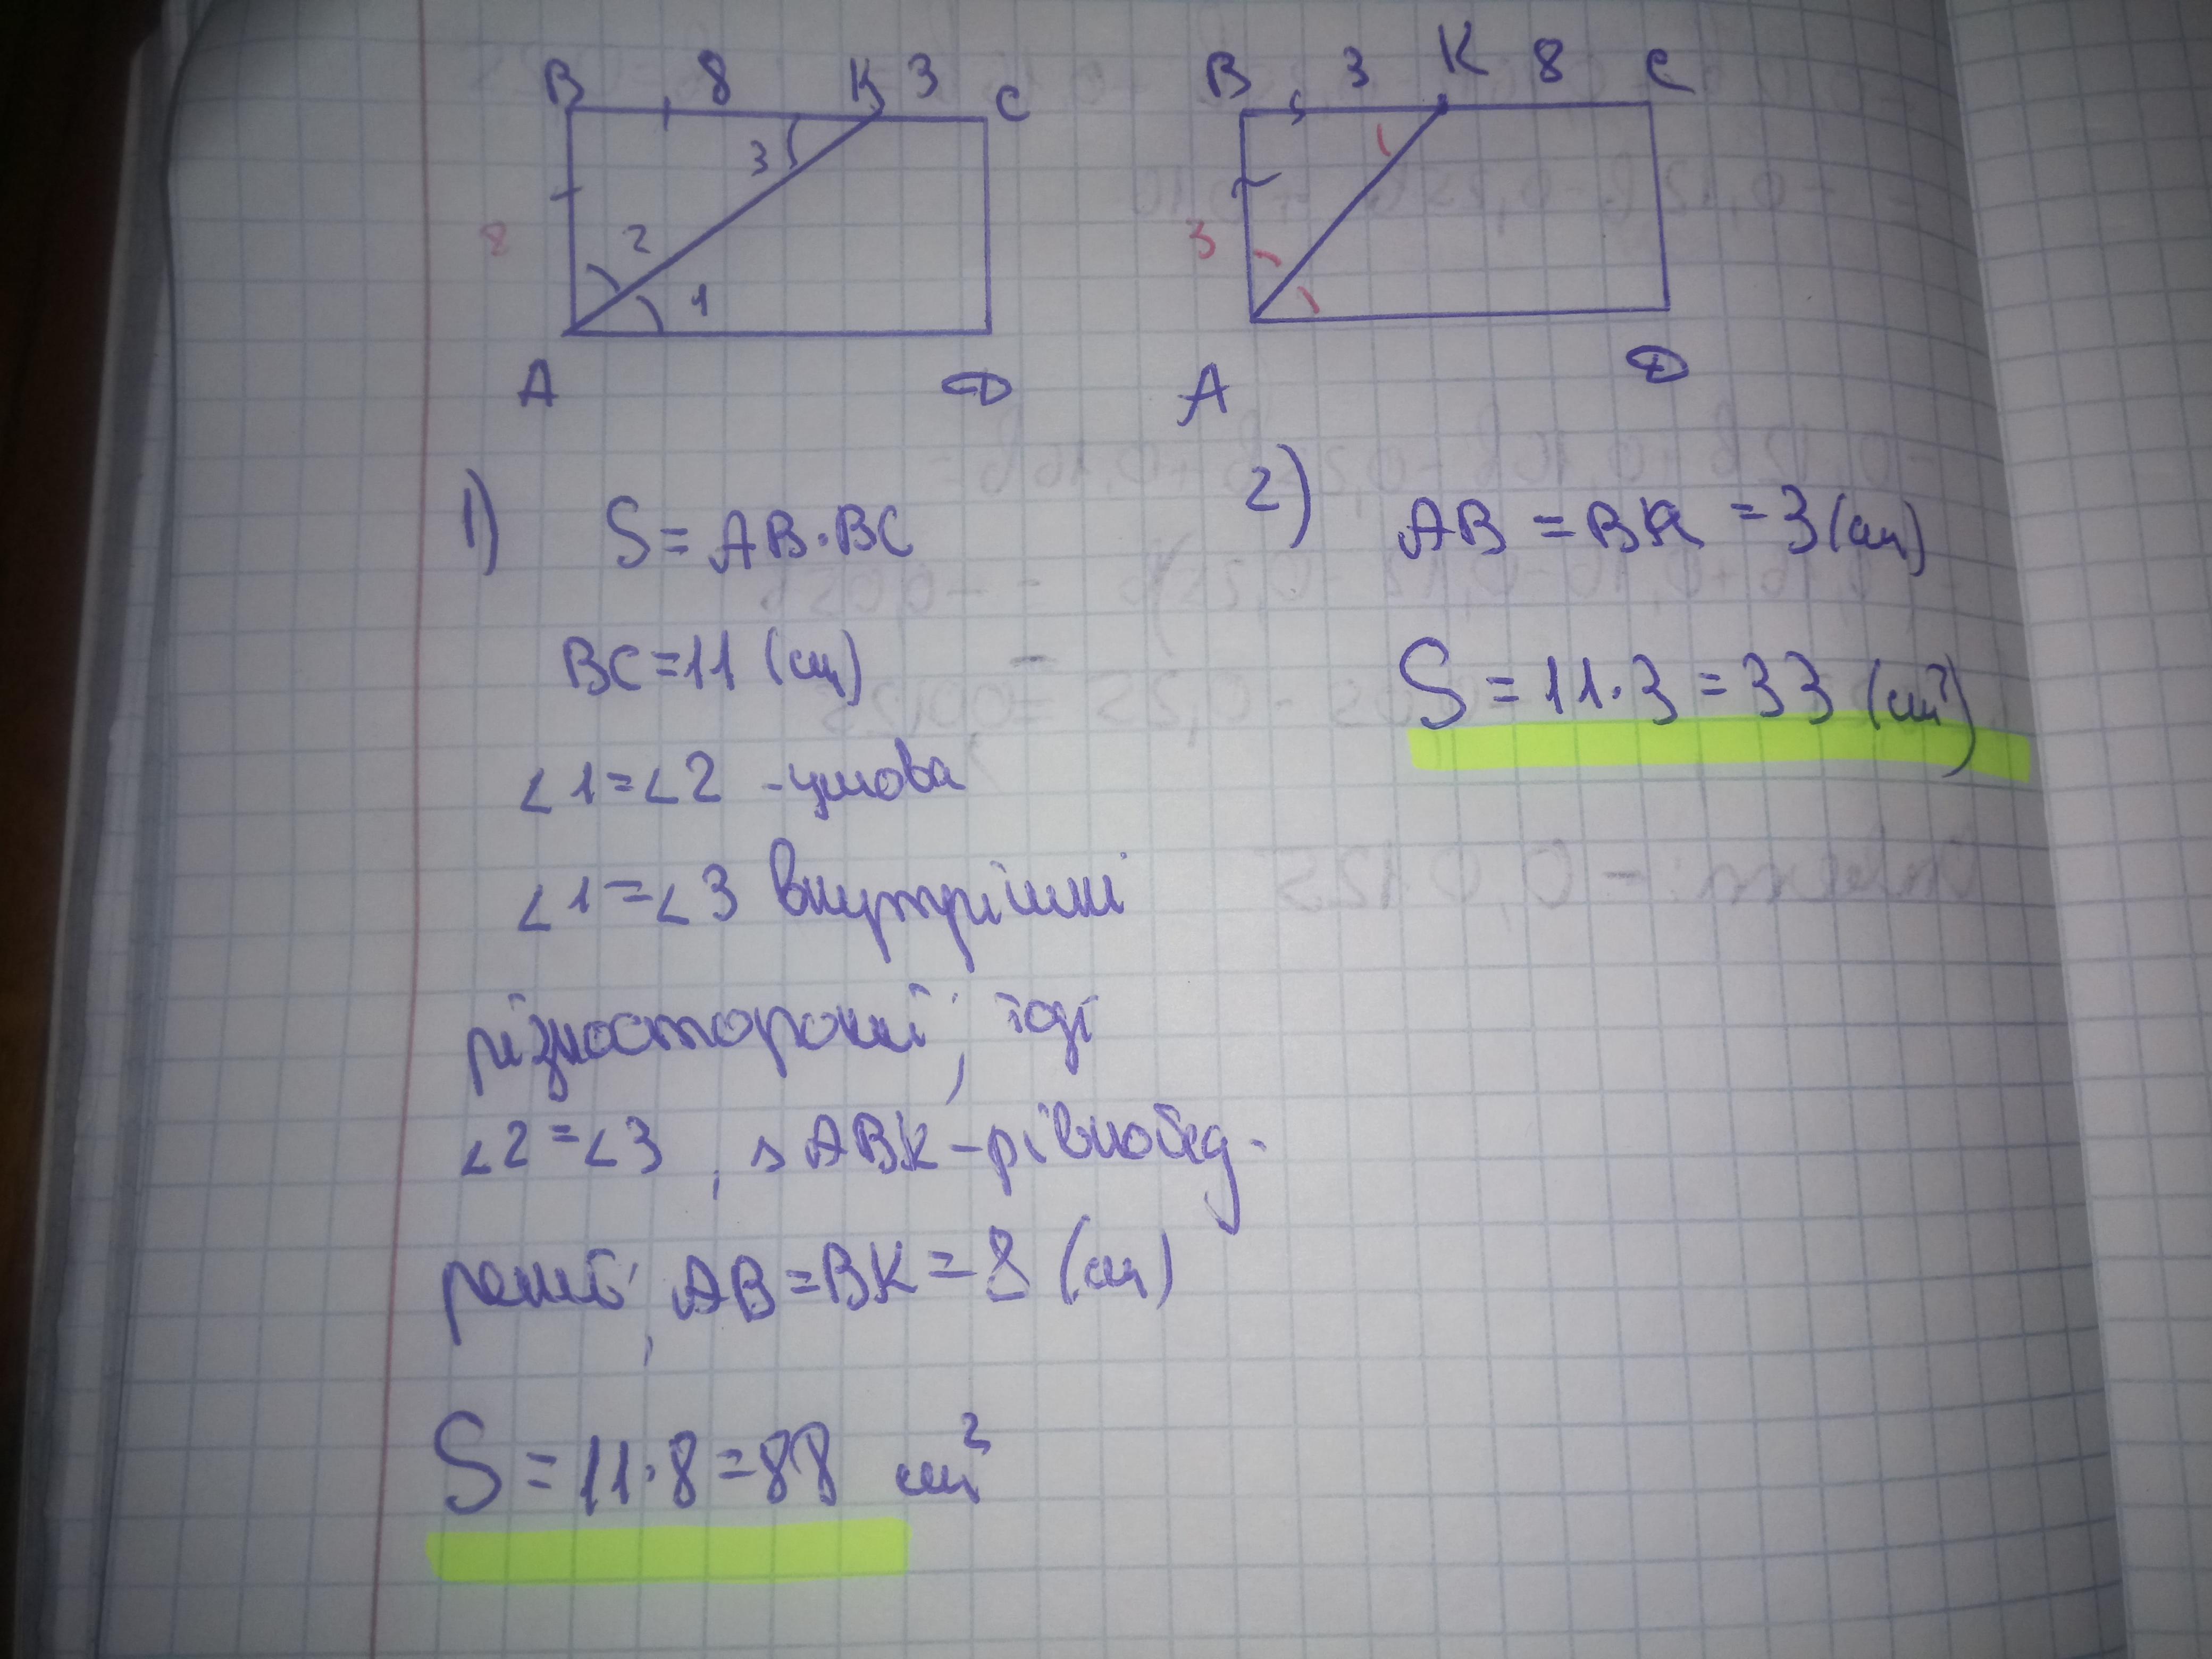 B 8 K 3 C
3
8 2
1
A D
B 3 K 8 C
3
A D
1) S = AB·BC
BC = 11 (см)
∠1 = ∠2 - умова
∠1 = ∠3 внутрішні
різносторонні, тоді
∠2 = ∠3, △ ABK - рівнобед-
рений, AB = BK = 8 (см)
S = 11·8 = 88 см²
2) AB = BK = 3 (см)
S = 11·3 = 33 (см²)